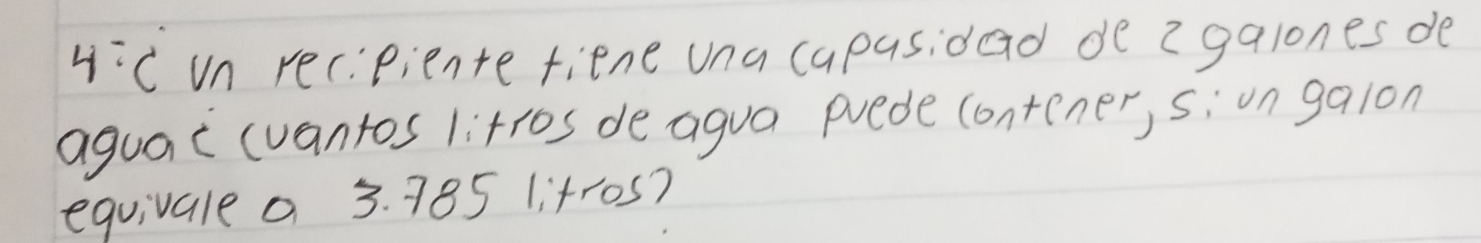 4-¿ un recipiente tiene una capasidad de 2 galones de
agua ¿ cuantos litros de agua puede contener, si un galon
equivale a 3.785 litros?